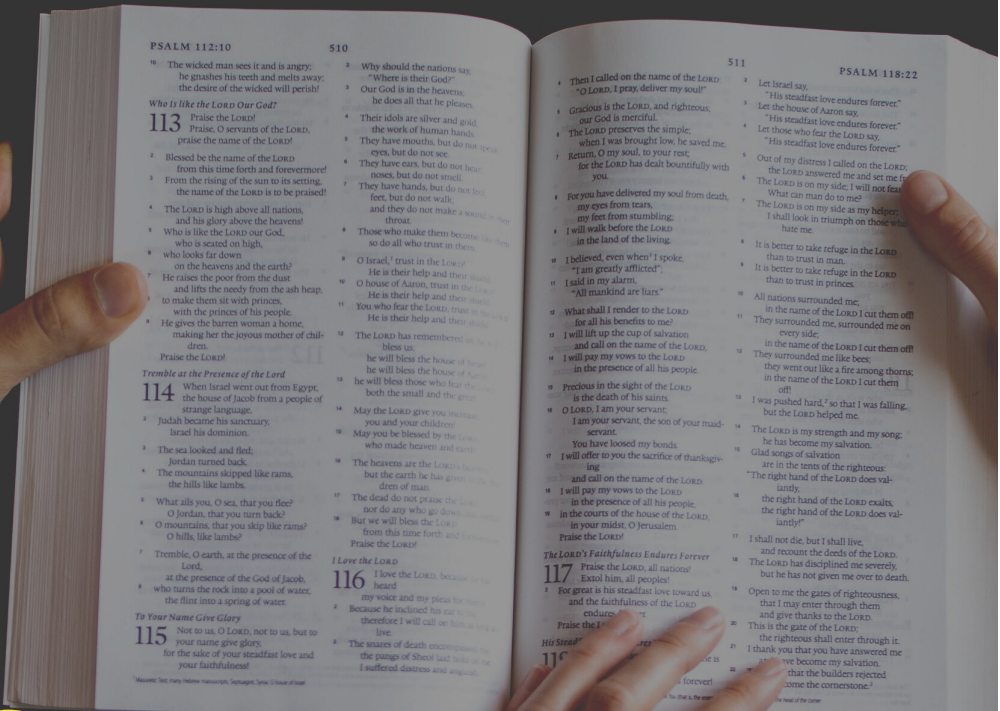 PSALM 112:10
510
10 The wicked man sees it and is angry;
he gnashes his teeth and melts away;
the desire of the wicked will perish!
Who Is like the LORD Our God?
113 Praise the LORD!
Praise, O servants of the LORD,
praise the name of the LORD!
2 Blessed be the name of the LORD
from this time forth and forevermore!
3 From the rising of the sun to its setting,
the name of the LORD is to be praised!
4 The LORD is high above all nations,
and his glory above the heavens!
5 Who is like the LORD our God,
who is seated on high,
6 who looks far down
on the heavens and the earth?
7 He raises the poor from the dust
and lifts the needy from the ash heap,
8 to make them sit with princes,
with the princes of his people.
9 He gives the barren woman a home,
making her the joyous mother of chil-
dren.
Praise the LORD!
Tremble at the Presence of the Lord
114 When Israel went out from Egypt,
the house of Jacob from a people of
strange language,
2 Judah became his sanctuary,
Israel his dominion.
3 The sea looked and fled;
Jordan turned back.
4 The mountains skipped like rams,
the hills like lambs.
5 What ails you, O sea, that you flee?
O Jordan, that you turn back?
6 O mountains, that you skip like rams?
O hills, like lambs?
7 Tremble, O earth, at the presence of the
Lord,
at the presence of the God of Jacob,
8 who turns the rock into a pool of water,
the flint into a spring of water.
To Your Name Give Glory
115 Not to us, O LORD, not to us, but to
your name give glory,
for the sake of your steadfast love and
your faithfulness!
2 Why should the nations say,
"Where is their God?"
3 Our God is in the heavens;
he does all that he pleases.
4 Their idols are silver and gold,
the work of human hands.
5 They have mouths, but do not speak;
eyes, but do not see.
6 They have ears, but do not hear;
noses, but do not smell.
7 They have hands, but do not feel;
feet, but do not walk;
and they do not make a sound in their
throat.
8 Those who make them become like them;
so do all who trust in them.
9 O Israel,¹ trust in the LORD!
He is their help and their shield.
10 O house of Aaron, trust in the LORD!
He is their help and their shield.
11 You who fear the LORD, trust in the
He is their help and their shield.
12 The LORD has remembered
bless us;
he will bless the house of
he will bless the house of
13 he will bless those who fear the
both the small and the great.
14 May the LORD give you increase,
you and your children!
15 May you be blessed by the LORD,
who made heaven and earth!
16 The heavens are the LORD's heavens,
but the earth he has given to the chil-
dren of man.
17 The dead do not praise the
nor do any who go down
18 But we will bless the LORD
from this time forth and forevermore.
Praise the LORD!
I Love the LORD
116 I love the LORD, because he has
heard
my voice and my pleas for mercy.
2 Because he inclined his ear to me,
therefore I will call on him as long as I
live.
3 The snares of death encompassed me;
the pangs of Sheol laid hold on me;
I suffered distress and anguish.
511
PSALM 118:22
4 Then I called on the name of the LORD:
"O LORD, I pray, deliver my soul!"
5 Gracious is the LORD, and righteous;
our God is merciful.
6 The LORD preserves the simple;
when I was brought low, he saved me.
7 Return, O my soul, to your rest;
for the LORD has dealt bountifully with
you.
8 For you have delivered my soul from death,
my eyes from tears,
my feet from stumbling;
9 I will walk before the LORD
in the land of the living.
10 I believed, even when¹ I spoke,
"I am greatly afflicted";
11 I said in my alarm,
"All mankind are liars."
12 What shall I render to the LORD
for all his benefits to me?
13 I will lift up the cup of salvation
and call on the name of the LORD,
14 I will pay my vows to the LORD
in the presence of all his people.
15 Precious in the sight of the LORD
is the death of his saints.
16 O LORD, I am your servant;
I am your servant, the son of your maid-
servant.
You have loosed my bonds.
17 I will offer to you the sacrifice of thanksgiv-
ing
and call on the name of the LORD.
18 I will pay my vows to the LORD
in the presence of all his people,
19 in the courts of the house of the LORD,
in your midst, O Jerusalem.
Praise the LORD!
The LORD's Faithfulness Endures Forever
117 Praise the LORD, all nations!
Extol him, all peoples!
2 For great is his steadfast love toward us,
and the faithfulness of the LORD
endures
Praise the
His
is
forever!
2 Let Israel say,
"His steadfast love endures forever."
3 Let the house of Aaron say,
"His steadfast love endures forever."
4 Let those who fear the LORD say,
"His steadfast love endures forever."
5 Out of my distress I called on the LORD;
the LORD answered me and set me
6 The LORD is on my side; I will not fear.
What can man do to me?
7 The LORD is on my side as my helper;
I shall look in triumph on those who
hate me.
8 It is better to take refuge in the LORD
than to trust in man.
9 It is better to take refuge in the LORD
than to trust in princes.
10 All nations surrounded me;
in the name of the LORD I cut them off!
11 They surrounded me, surrounded me on
every side;
in the name of the LORD I cut them off!
12 They surrounded me like bees;
they went out like a fire among thorns;
in the name of the LORD I cut them
off!
13 I was pushed hard,² so that I was falling,
but the LORD helped me.
14 The LORD is my strength and my song;
he has become my salvation.
15 Glad songs of salvation
are in the tents of the righteous:
"The right hand of the LORD does val-
iantly,
16 the right hand of the LORD exalts,
the right hand of the LORD does val-
iantly!"
17 I shall not die, but I shall live,
and recount the deeds of the LORD.
18 The LORD has disciplined me severely,
but he has not given me over to death.
19 Open to me the gates of righteousness,
that I may enter through them
and give thanks to the LORD.
20 This is the gate of the LORD;
the righteous shall enter through it.
21 I thank you that you have answered me
have become my salvation.
22 that the builders rejected
come the cornerstone.²